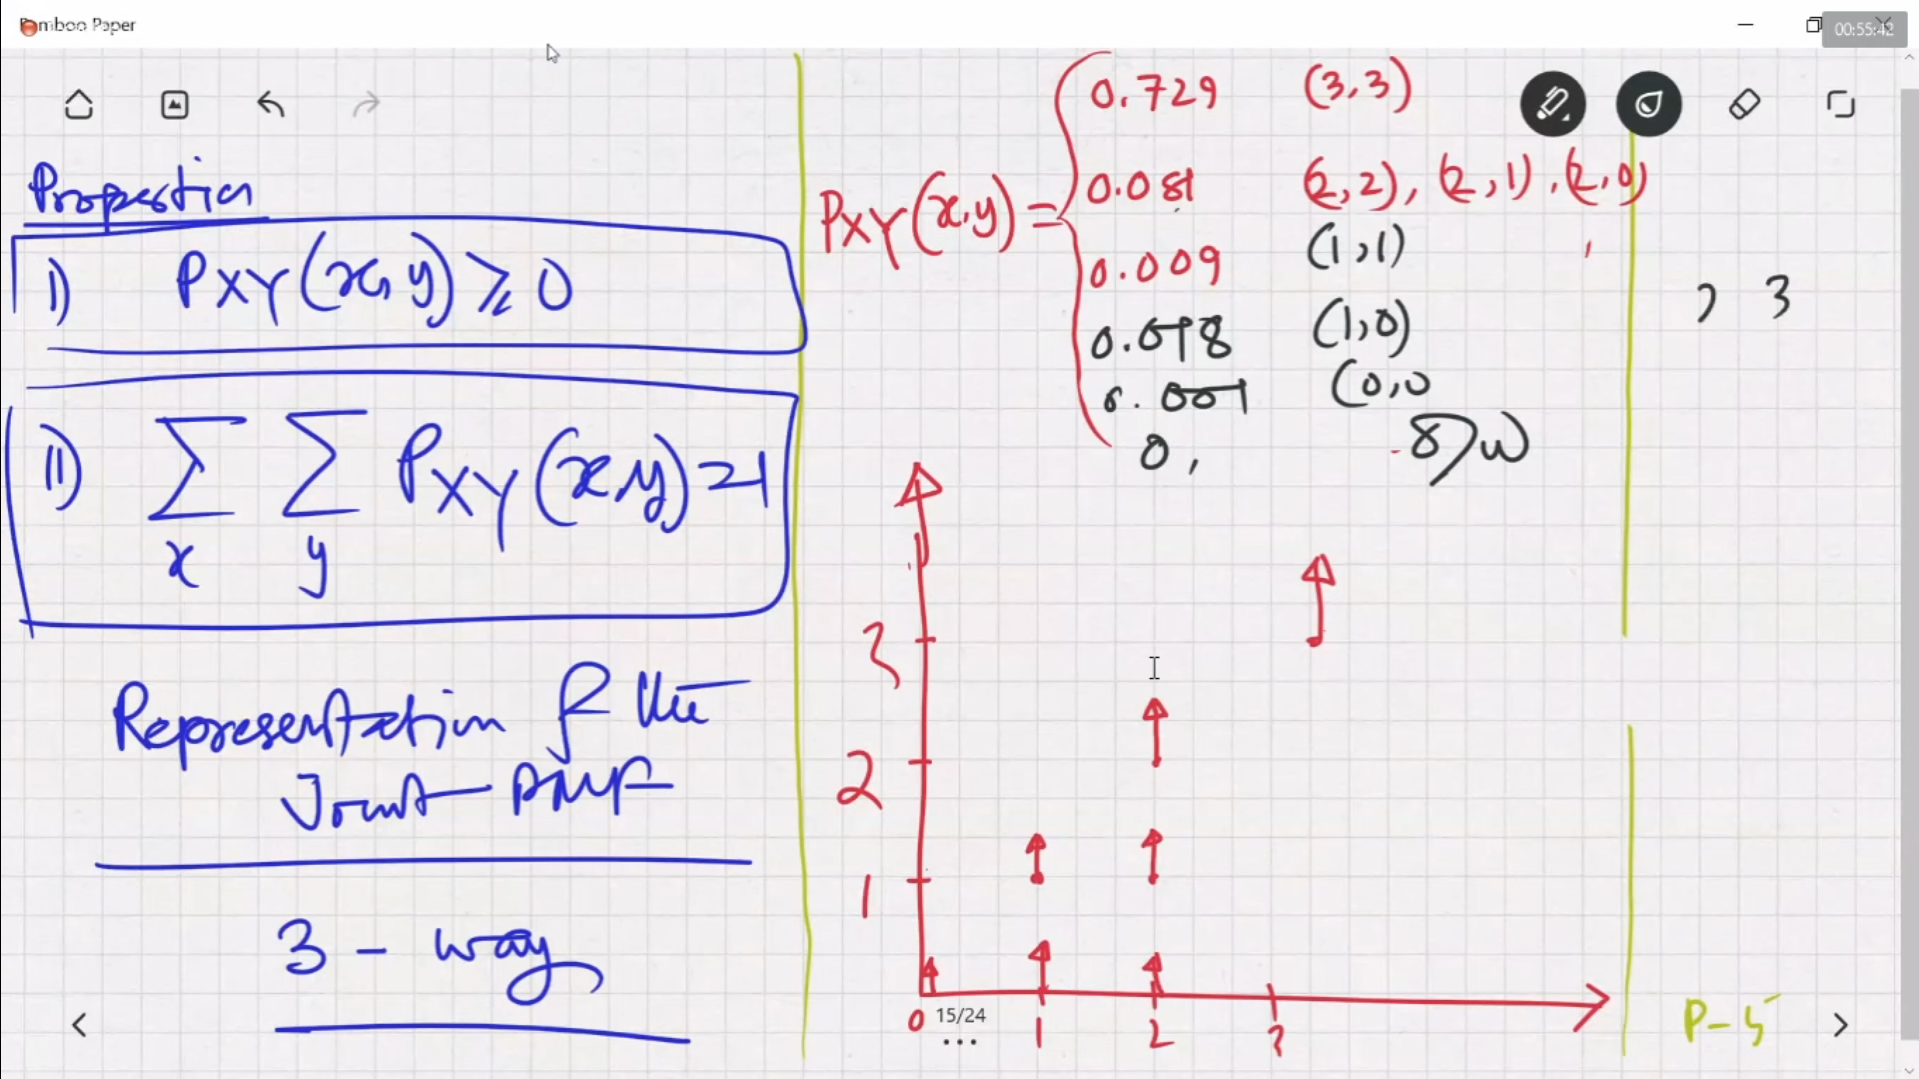 Bamboo Paper
00:55:42
Properties
I) PXY(x,y) ≥ 0
II) ∑ ∑ PXY(x,y) = 1
x y
Representation of the
Joint PMF
3 - way
PXY(x,y) =
0.729 (3,3)
0.081 (2,2), (2,1), (2,0)
0.009 (1,1)
0.018 (1,0)
0.001 (0,0
0, o/w
, 3
3
2
1
0 1 2 3
15/24
P-5